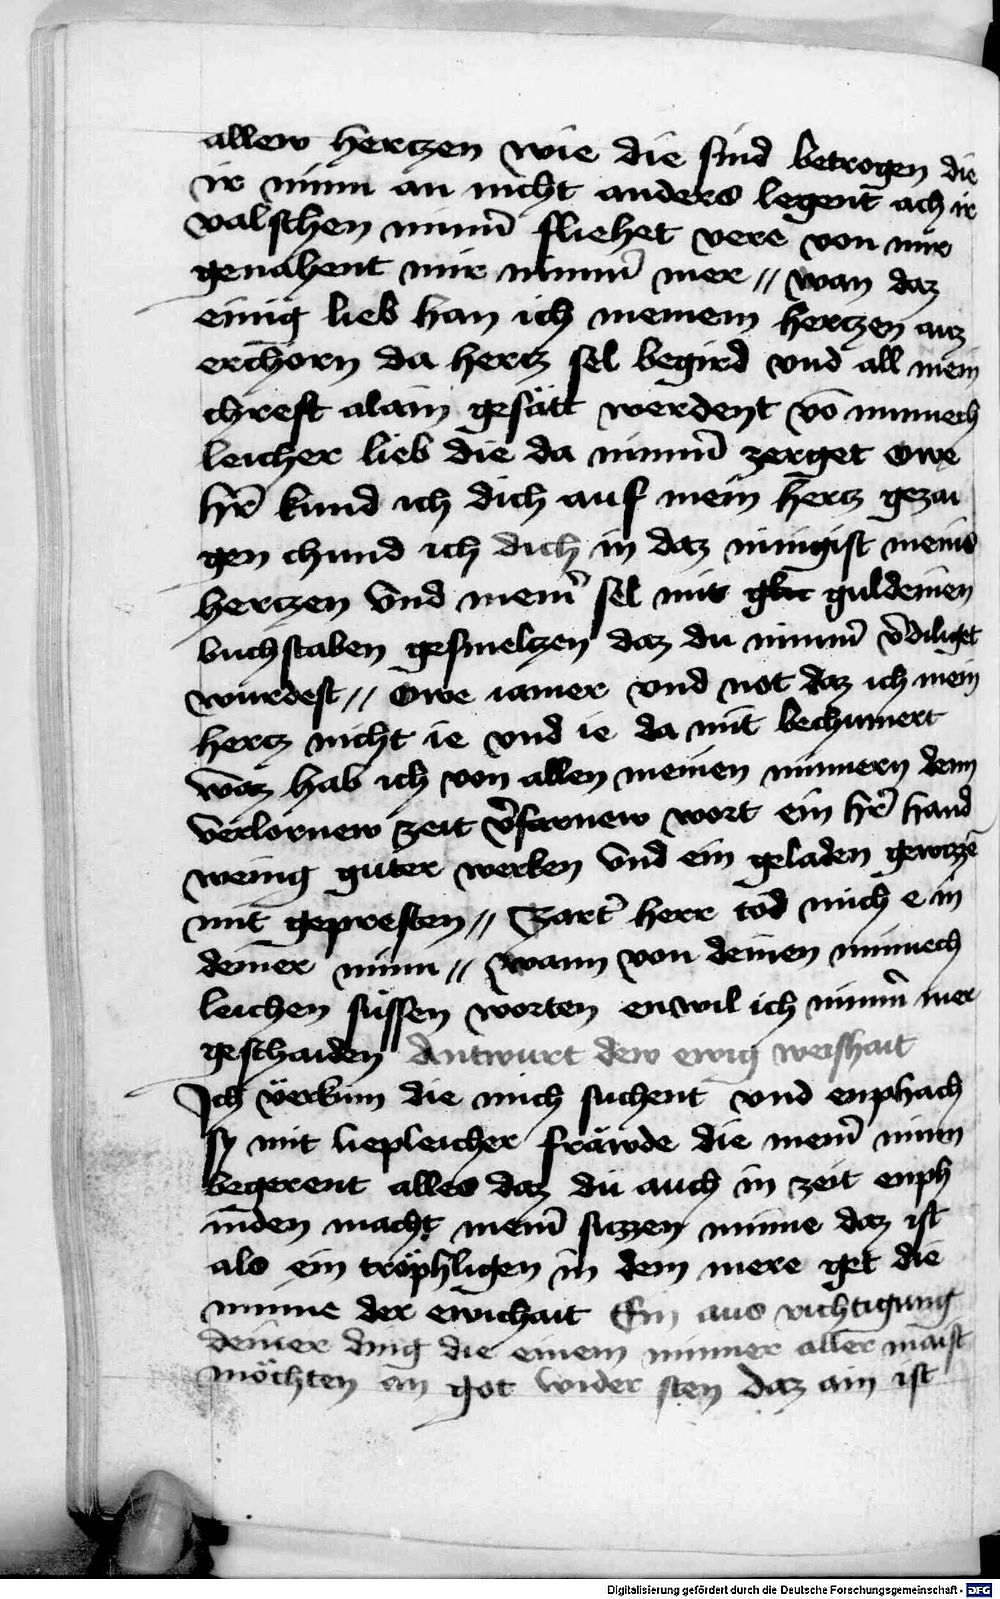 allew hertzen wie die sind betrogen die
ir minn an nicht anders legent ach ir
valschen minn̄ fliehet vere von mir
genahent mir nimm̄ mer // wan daz
einig lieb han ich meinem hertzen auz
erchorn da hertz sel begird vnd all mein
chreft alain gesätt werdent vō minnech
leicher lieb die da nimm̄ zerget Owe
hr̄ kund ich dich auf mein hertz gezai
gen chund ich dich in daz innigist meins
hertzen vnd mein̄ sel mit guldeinen
buchstaben gesmeltzen daz du nimm̄ v̄diliget
wurdest // Owe iamer vnd not daz ich mein
hertz nicht ie vnd ie da mit bechumert
waz hab ich von allen meinen minnern denn
verlornew zeit wort ein hr̄ hand
wenig guter werken vnd ein geladen gewizzē
mit gepresten // Zart̄ herr tod mich e in
deiner minn // wann von deinen minnech
leichen süssen worten enwil ich nimm̄ mer
geschaiden Antwurt dew ewig weishait
Ich verkum die mich suchent vnd enphach
sy mit liepleicher fräwde die mein̄ minn
begerent alles daz du auch in zeit enph
inden macht mein̄ suzzen minne daz ist
als ein tröphligen in dem mere get die
minne der ewichait Ein aus richtigung
deiner ding die einem minner aller maist
möchten an got wider sten daz ain ist
Digitalisierung gefördert durch die Deutsche Forschungsgemeinschaft - DFG